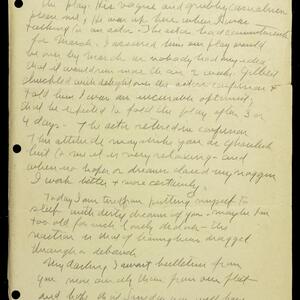 the play. His vague and grubby casualness
please me. He was up here when Huse
talking to an actor. The actor had commitments
for March. I assured him our play would
be over by March as nobody had any idea
that it would run more than 2 weeks. Gilbert
chuckled with delight over the actor's confusion &
told him I was an incurable optimist,
that he expected to fold the play after 3 or
4 days. The actor retired in confusion
This attitude may strike you as ghoulish
but to me it is very relaxing - and
when no hopes or dreams cloud my noggin
I work better & more certainly.
Today I am tired from putting myself to
sleep with dirty dreams of you - maybe I'm
too old for such lonely debauch - the
reaction is that of having been dragged
through a debauch
My darling I want bulletins from
you more surely than from our fleet -
and